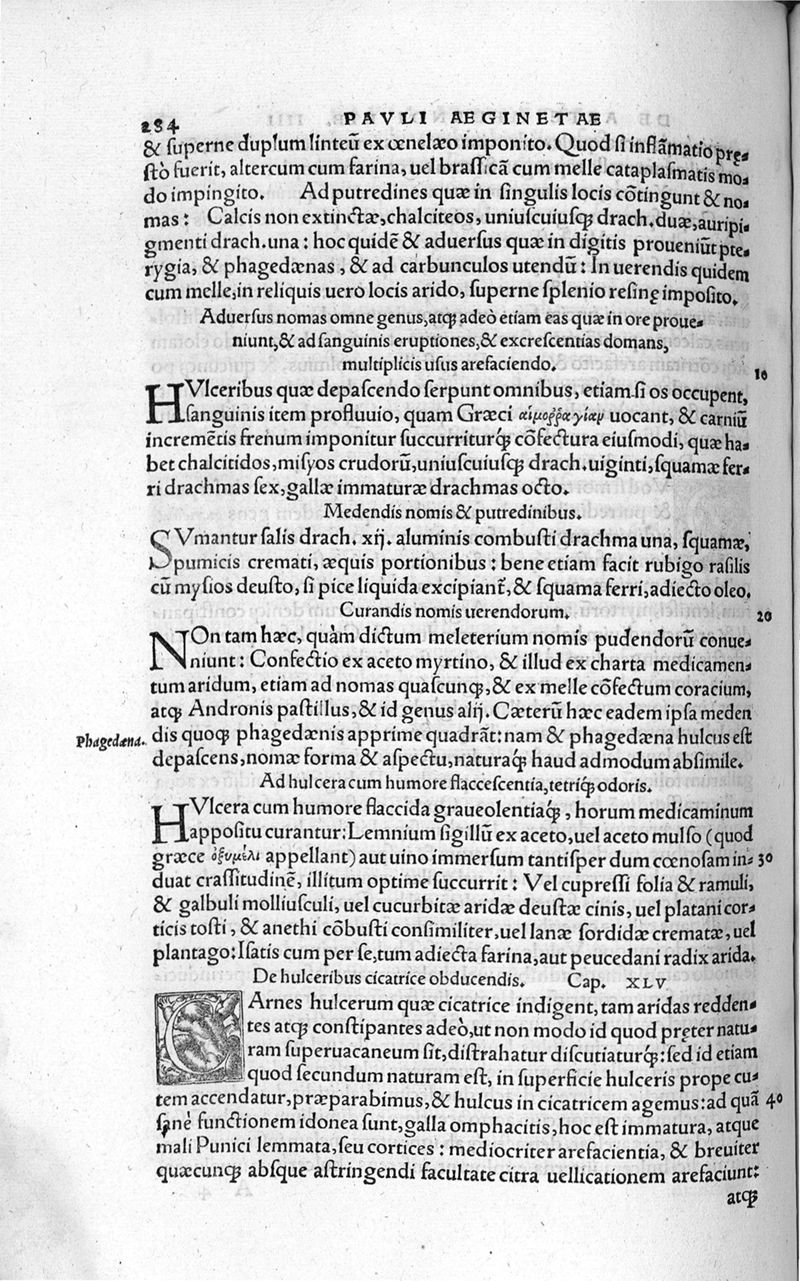 284 PAVLI AEGINETAE
& ſuperne duplum linteũ ex œnelæo imponito. Quod ſi inflãmatio pręs
ſtò fuerit, altercum cum farina, uel braſſicã cum melle cataplaſmatis mo⸗
do impingito. Ad putredines quæ in ſingulis locis cõtingunt & no⸗
mas: Calcis non extinctæ, chalciteos, uniuſcuiuſq; drach. duæ, auripi⸗
gmenti drach. una: hoc quidẽ & aduerſus quæ in digitis proueniũt pte⸗
rygia, & phagedænas, & ad carbunculos utendũ: In uerendis quidem
cum melle, in reliquis uero locis arido, ſuperne ſplenio reſinę impoſito.
Aduerſus nomas omne genus, atq; adeò etiam eas quæ in ore proue⸗
niunt, & ad ſanguinis eruptiones, & excreſcentias domans,
multiplicis uſus arefaciendo. 10
HVlceribus quæ depaſcendo ſerpunt omnibus, etiam ſi os occupent,
ſanguinis item profluuio, quam Græci αἱμοῤῥαγίαν uocant, & carniũ
incremẽtis frenum imponitur ſuccurriturq́; cõfectura eiuſmodi, quæ ha⸗
bet chalcitidos, miſyos crudorũ, uniuſcuiuſq; drach. uiginti, ſquamæ fer⸗
ri drachmas ſex, gallæ immaturæ drachmas octo.
Medendis nomis & putredinibus.
SVmantur ſalis drach. xij. aluminis combuſti drachma una, ſquamæ,
pumicis cremati, æquis portionibus: bene etiam facit rubigo raſilis
cũ myſios deuſto, ſi pice liquida excipiant̃, & ſquama ferri, adiecto oleo.
Curandis nomis uerendorum. 20
NOn tam hæc, quàm dictum meleterium nomis pudendorũ conue⸗
niunt: Confectio ex aceto myrtino, & illud ex charta medicamen⸗
tum aridum, etiam ad nomas quaſcunq;, & ex melle cõfectum coracium,
atq; Andronis paſtillus, & id genus alij. Cæterũ hæc eadem ipſa meden
Phagedæna. dis quoq; phagedænis apprime quadrãt: nam & phagedæna hulcus eſt
depaſcens, nomæ forma & aſpectu, naturaq́; haud admodum abſimile.
Ad hulcera cum humore flacceſcentia, tetriq́; odoris.
HVlcera cum humore flaccida graueolentiaq́;, horum medicaminum
appoſitu curantur: Lemnium ſigillũ ex aceto, uel aceto mulſo (quod
græce ὀξυμέλι appellant) aut uino immerſum tantiſper dum cœnoſam in⸗ 30
duat craſſitudinẽ, illitum optime ſuccurrit: Vel cupreſſi folia & ramuli,
& galbuli molliuſculi, uel cucurbitæ aridæ deuſtæ cinis, uel platani cor⸗
ticis toſti, & anethi cõbuſti conſimiliter, uel lanæ ſordidæ crematæ, uel
plantago: Iſatis cum per ſe, tum adiecta farina, aut peucedani radix arida.
De hulceribus cicatrice obducendis. Cap. XLV
CArnes hulcerum quæ cicatrice indigent, tam aridas redden⸗
tes atq; conſtipantes adeò, ut non modo id quod pręter natu⸗
ram ſuperuacaneum ſit, diſtrahatur diſcutiaturq́;: ſed id etiam
quod ſecundum naturam eſt, in ſuperficie hulceris prope cu⸗
tem accendatur, præparabimus, & hulcus in cicatricem agemus: ad quã 40
ſanè functionem idonea ſunt, galla omphacitis, hoc eſt immatura, atque
mali Punici lemmata, ſeu cortices: mediocriter arefacientia, & breuiter
quæcunq; abſque aſtringendi facultate citra uellicationem arefaciunt:
atq;